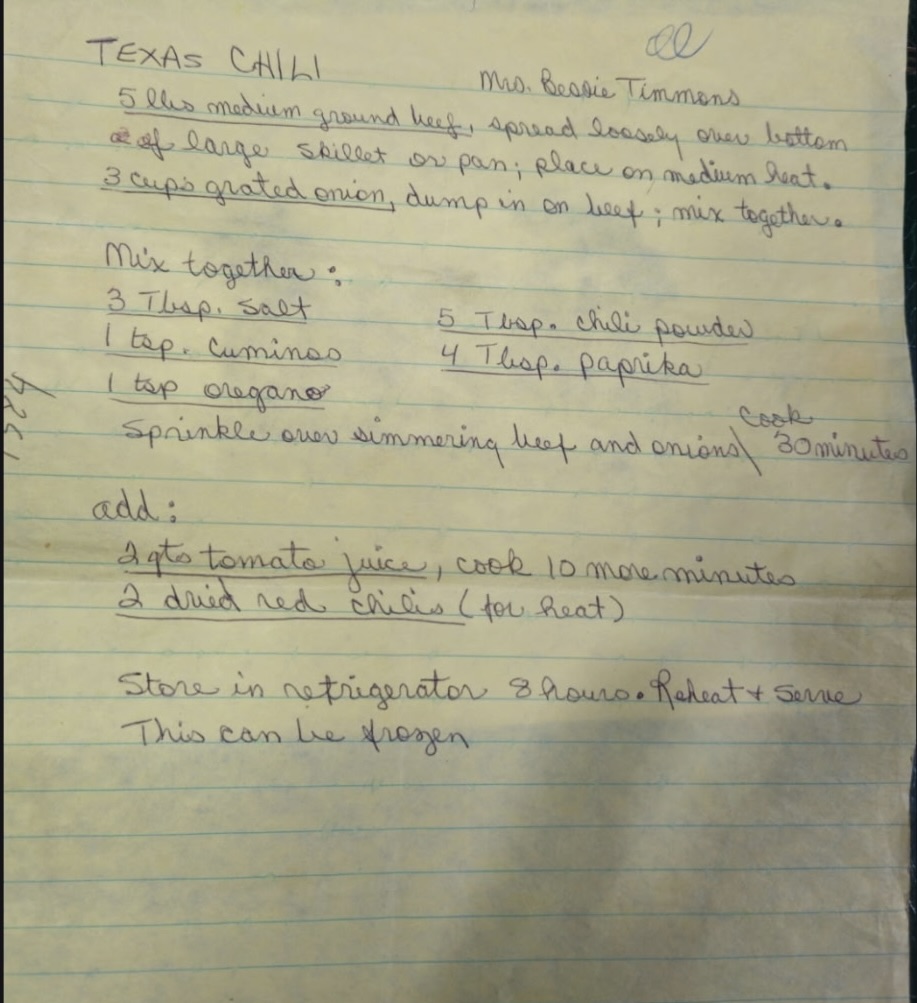 TEXAS CHILI
Mrs. Bessie Timmons
5 lbs medium ground beef, spread loosely over bottom
of large skillet or pan; place on medium heat.
3 cups grated onion, dump in on beef; mix together.
Mix together:
3 Tbsp. salt
5 Tbsp. chili powder
1 tsp. cuminos
4 Tbsp. paprika
1 tsp oregano
Sprinkle over simmering beef and onions\ Cook 30 minutes
add:
2 qts tomato juice, cook 10 more minutes
2 dried red chilis (for heat)
Store in refrigerator 8 hours. Reheat + Serve
This can be frozen